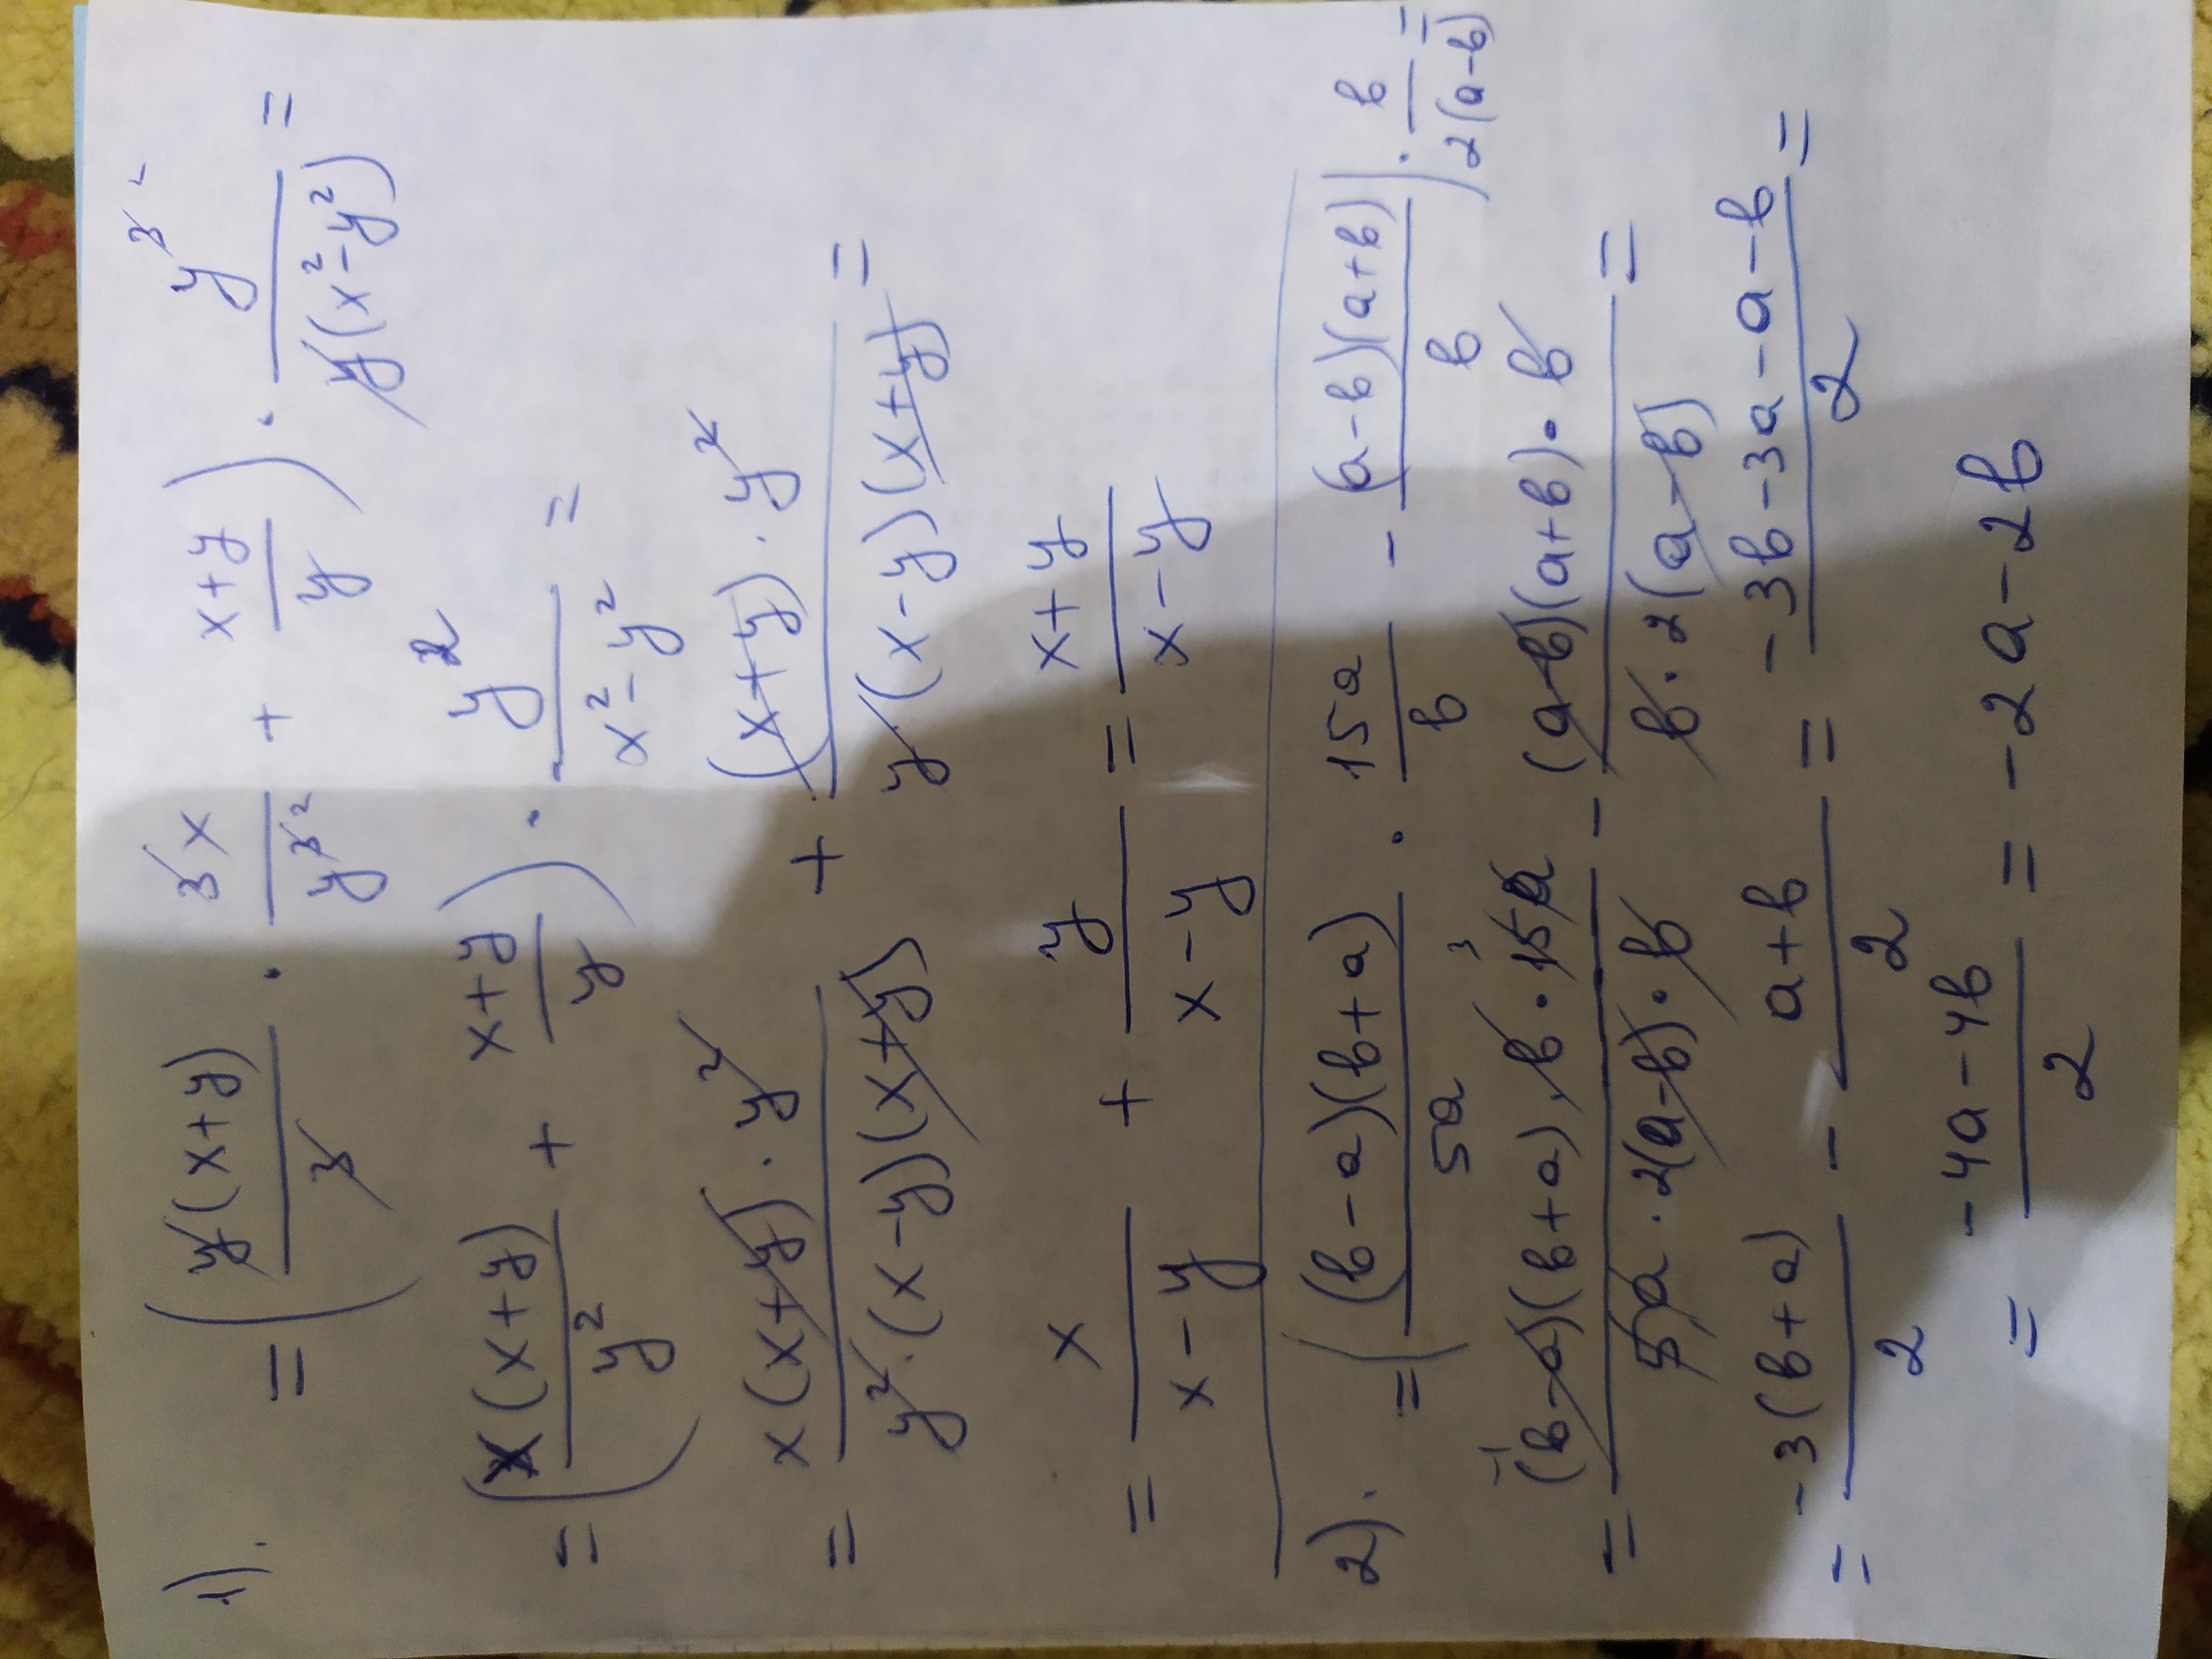 1). = (y(x+y)/3 · 3x/y³² + x+y/y) · y³²/y(x²-y²) =
= (x(x+y)/y² + x+y/y) · y²/x²-y² =
= x(x+y)·y²/y²·(x-y)(x+y) + (x+y)·y²/y(x-y)(x+y) =
= x/x-y + y/x-y = x+y/x-y
2). = ((b-a)(b+a)/5a · 15a/b - (a-b)(a+b)/b) · b/2(a-b) =
= ⁻¹(b-a)(b+a)·b·15³a/5a·2(a-b)·b - (a-b)(a+b)·b/b·2(a-b) =
= -3(b+a)/2 - a+b/2 = -3b-3a-a-b/2 =
= -4a-4b/2 = -2a-2b